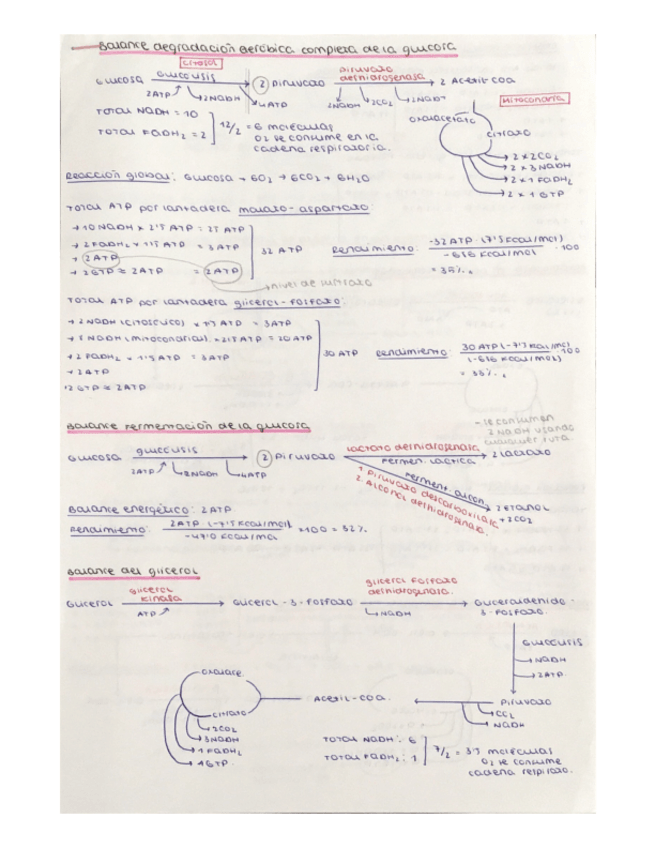 Balance degradación aeróbica completa de la glucosa
citosol
Glucosa glucolisis 2 piruvato piruvato deshidrogenasa 2 Acetil-CoA
2ATP 2NADH 4ATP 2NADH 2CO2
Mitocondria
Total NADH = 10
Total FADH2 = 2
12/2 = 6 moléculas
O2 se consume en la
cadena respiratoria.
oxalacetato
citrato
2 x 2CO2
2 x 3NADH
2 x 1 FADH2
2 x 1 GTP
Reacción global: Glucosa + 6O2 → 6CO2 + 6H2O
Total ATP por lanzadera malato-aspartato:
→ 10 NADH x 2'5 ATP = 25 ATP
→ 2 FADH2 x 1'5 ATP = 3 ATP
→ 2ATP
→ 2GTP ≈ 2ATP = 2ATP
32 ATP
Rendimiento: -32 ATP (7'3 Kcal/mol) / -686 Kcal/mol · 100
= 35%
→ nivel de sustrato
Total ATP por lanzadera glicerol-fosfato:
→ 2 NADH (citosólico) x 1'5 ATP = 3ATP
→ 8 NADH (mitocondrial) x 2'5 ATP = 20 ATP
→ 2 FADH2 x 1'5 ATP = 3ATP
→ 2ATP
→ 2 GTP ≈ 2ATP
30 ATP
Rendimiento: 30 ATP (-7'3 Kcal/mol) / (-686 Kcal/mol) · 100
= 33%
Balance fermentación de la glucosa
- se consumen
2 NADH usando
cualquier ruta.
Glucosa glucolisis 2 piruvato lactato deshidrogenasa 2 lactato
2ATP 2NADH 4ATP
Ferment. láctica
Ferment. alcoh.
1. Piruvato descarboxilasa
2. Alcohol deshidrogenasa.
2 etanol
+ 2CO2
Balance energético: 2ATP
Rendimiento: 2ATP (-7'3 Kcal/mol) / -47'0 Kcal/mol x 100 = 32%
Balance del glicerol
Glicerol glicerol kinasa Glicerol-3-fosfato glicerol fosfato deshidrogenasa. Gliceraldehído-
3-fosfato.
ATP
NADH
Glucolisis
NADH
2ATP
Piruvato
CO2
NADH
Acetil-CoA
oxalace.
citrato
2CO2
3NADH
1 FADH2
1 GTP
Total NADH: 6
Total FADH2: 1
7/2 = 3'5 moléculas
O2 se consume
cadena respirato.